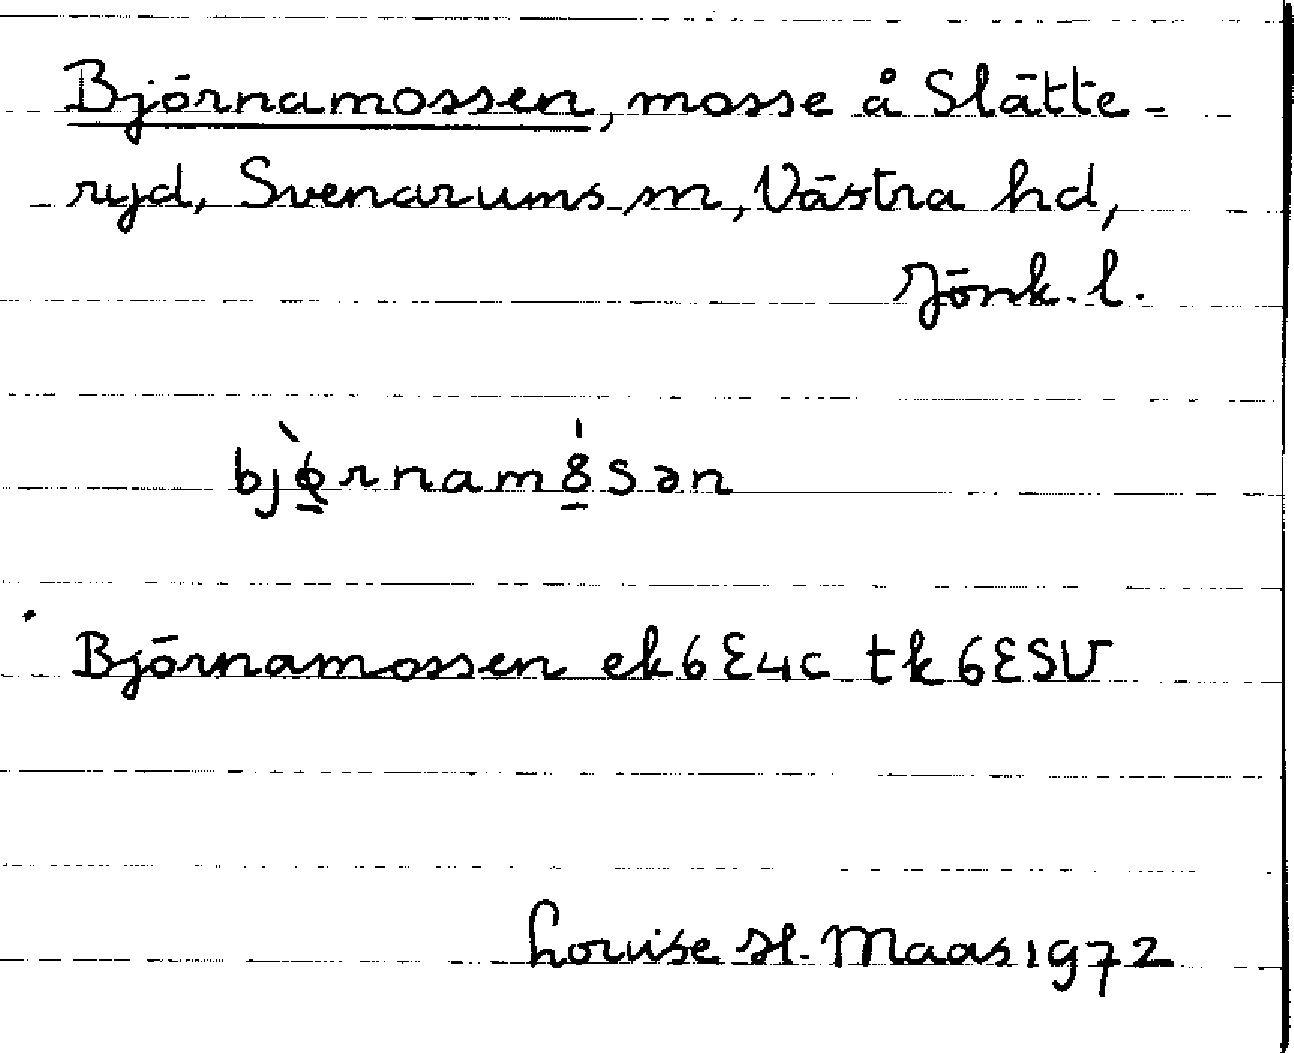 Björnamossen, mosse å Slätte-
ryd, Svenarums sn, Västra hd,
Jönk. l.
bjö̀rnamósən
Björnamossen ek 6E4c tk 6ESV
Louise H. Maas 1972